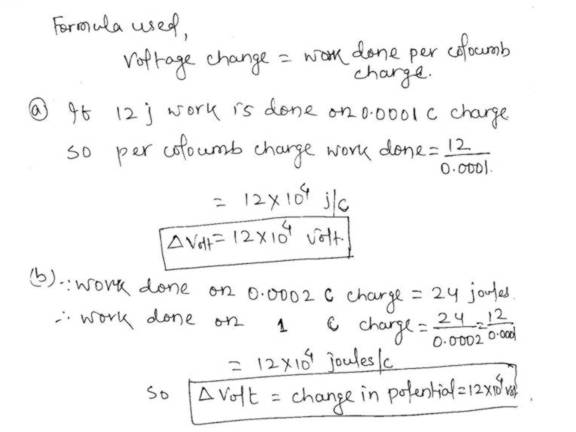 Formula used,
Voltage change = work done per coloumb
charge.
(a) If 12 j work is done on 0.0001 C charge
so per coloumb charge work done = 12/0.0001.
= 12×10⁴ j/c
ΔVolt = 12×10⁴ volt.
(b) ∵ work done on 0.0002 C charge = 24 joules.
∴ work done on 1 C charge = 24/0.0002 = 12/0.0001
= 12×10⁴ joules/c
so ΔVolt = change in potential = 12×10⁴ volt